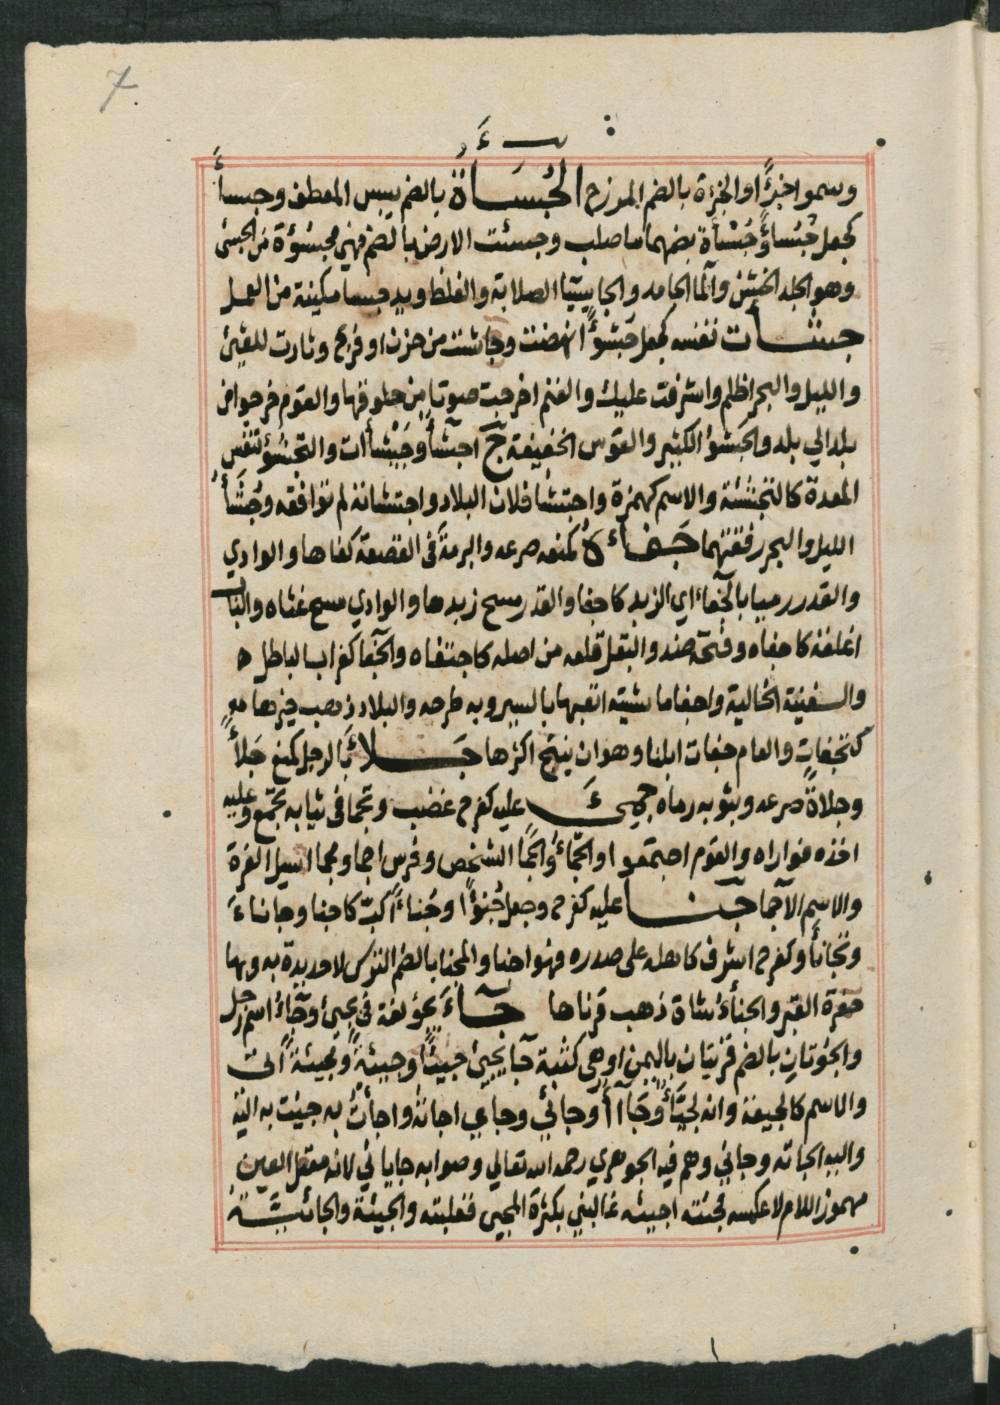 7
سَءَ
وسموا جزءًا والجزءة بالضم المرزح الجُسَاءَةُ بالضم يبس المعطف وجسأ
كجعل جُسُاؤً جُسْأَة بضمهما صلب وجسئت الارض بالضم فهي مجسُؤة من الجسئ
وهو الجلد الخشن والما الجامد والجاسيا الصلابة والغلظ ويد جسا مكينة من العمل
جشأت نفسه كجعل جُشؤًا نهضت وجاشت من حزن او فزع وثارت للقئ
والليل والبحر اظلم واشرفت عليك والغنم اخرجت صوتا من حلوقها والقوم خرجوا من
بلد الي بلد والجَشؤ الكثير والقوس الخفيفة ج اجشأ وجَشْأات والتجشؤ تنفس
المعدة كالتجشئة والاسم كهمزة واجتشا فلان البلاد واجتشاته لم توافقه وجُشَأُ
الليل والبحر دفقتهما جَفَأَهُ كمنعه صرعه والبرمة في القصعة كفاها والوادي
والقدر رميا بالجُفاء اي الزبد كاجفا والقدر مسح زبدها والوادي مسح غثاه والباب
اغلقه كاجفاه وفتحه ضد والبقل قلعه من اصله كاجتفاه والجُفا كغراب الباطل
والسفينة الخالية واجفا ماشيته اتعبها بالسير وبه طرحه والبلاد ذهب خيرها
كتجفات والعام جفات ابلنا وهو ان ينتج اكثرها جَلَأَ بالرجل كمنع جَلأً
وجلاةً صرعه وبثوبه رماه جمِئَ عليه كفرح غضب وتجما في ثيابه تجمع وعليه
اخذه فواراه والقوم اجتمعوا والجَمَأُ والجَمَا الشخص وفرس اجما ومجما اسيل الغرة
والاسم الاجما جنا عليه كفرح وجعل جُنؤًا وجُنأً اكب كاجنا وجانا
وتجانأ وكفرح اشرف كاهله على صدره فهو اجنا والمجنا بالضم الترس لا حديدة به وبها
حفرة القبر والجنأ شاة ذهب قرناها جَاءَ يجوء لغة في يجئ وجاء اسم رجل
والجؤتان بالضم قريتان باليمن او هي كثبة جا يجئ جيئًا وجيئةً ومجيئةً اتي
والاسم كالجيعة وانه لجيَّاء وجآأ وجائي وجاءي اجاته واجأت به جئت به اليه
واليه الجاته وجاءني وهم فيه الجوهري رحمه الله تعالي وصوابه جاياني لانه معتل العين
مهموز اللام لا عكسه فجئته اجيئه غالبني بكثرة المجي فغلبته والجيئة والجائئة